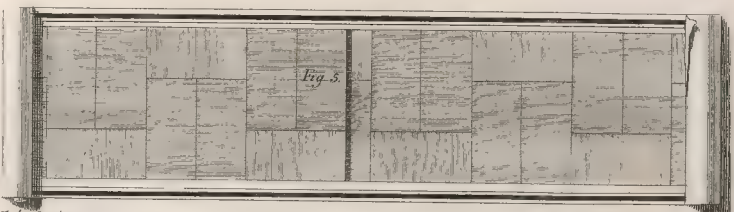 Fig 5.